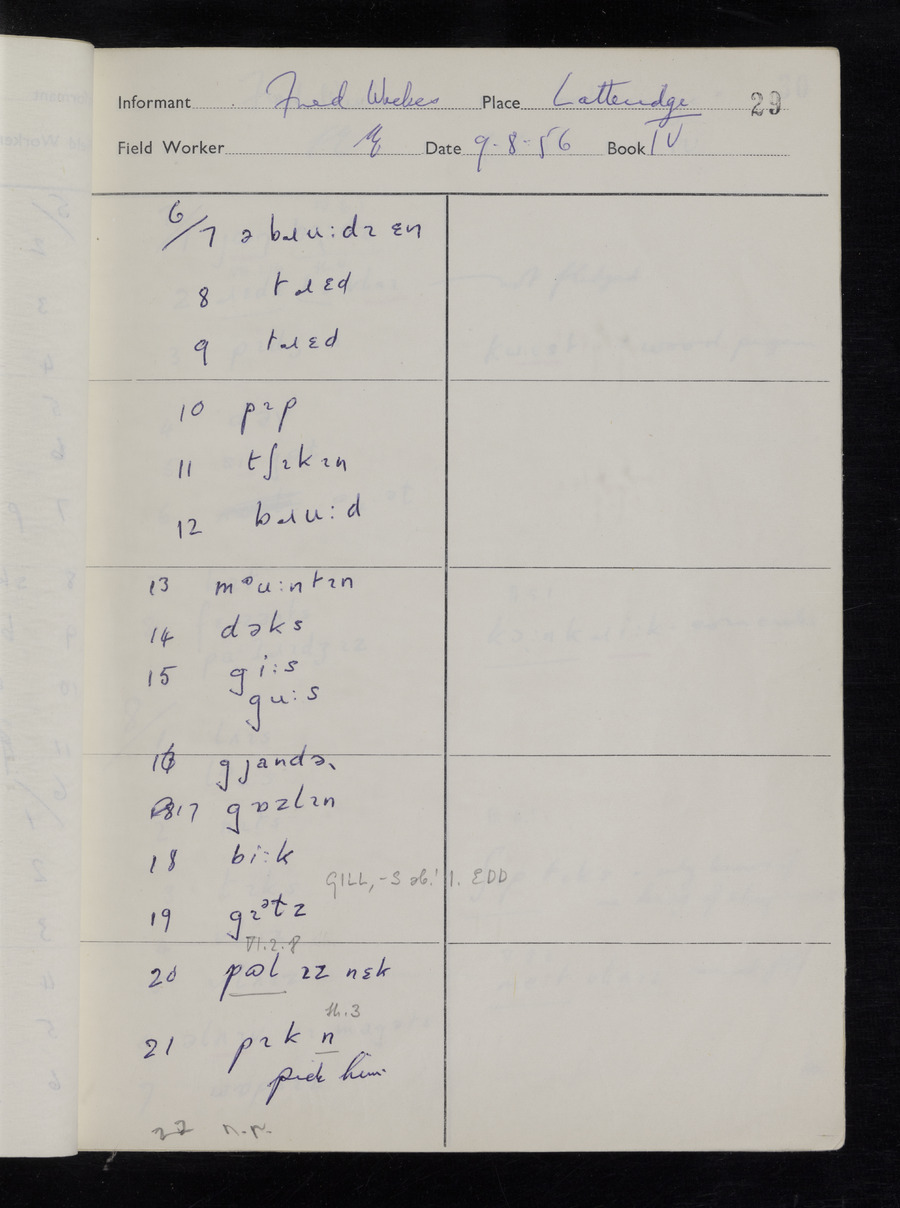 Informant Fred Weekes Place Latteridge 29
Field Worker Date 9-8-56 Book IV
6/7 ə bɹu:dɪ ɛn
8 tɹɛd
9 tɹɛd
10 pɪp
11 tʃɪkɪn
12 bɹu:d
13 məu:ntɪn
14 dəks
15 gi:s
gu:s
16 gjandə
17 gɒzlɪn
18 bi:k
GILL, -S sb.' 1. EDD
19 gɪətz
VI.2.8
20 pɷl ɪz nɛk
th.3
21 pɪk n
pick him
22 n.r.